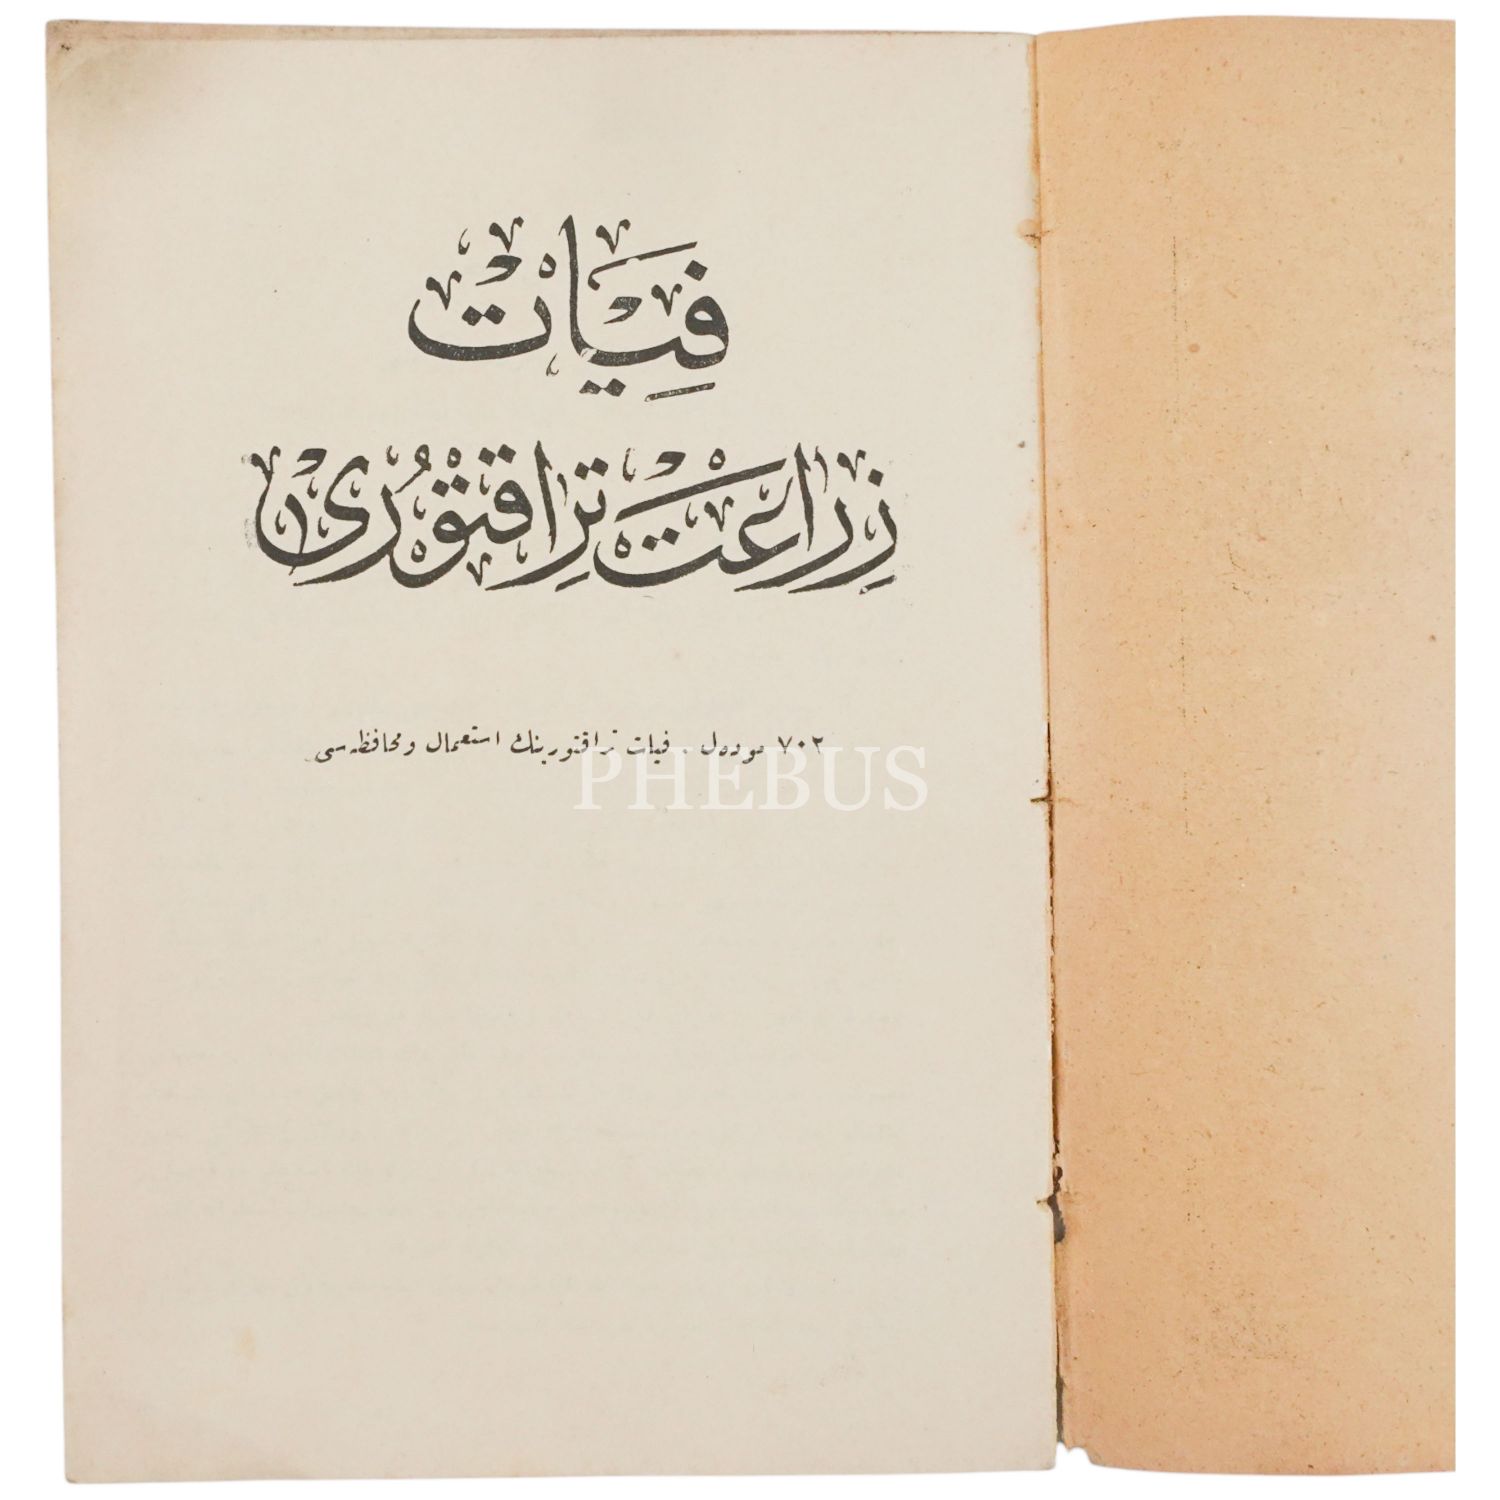 فِيَاتْ
زِرَاعَتْ تِرَاقتورُى
۷۰۲ موده‌ل ـ فيات تراقتورينك استعمال و محافظه‌سى
PHEBUS